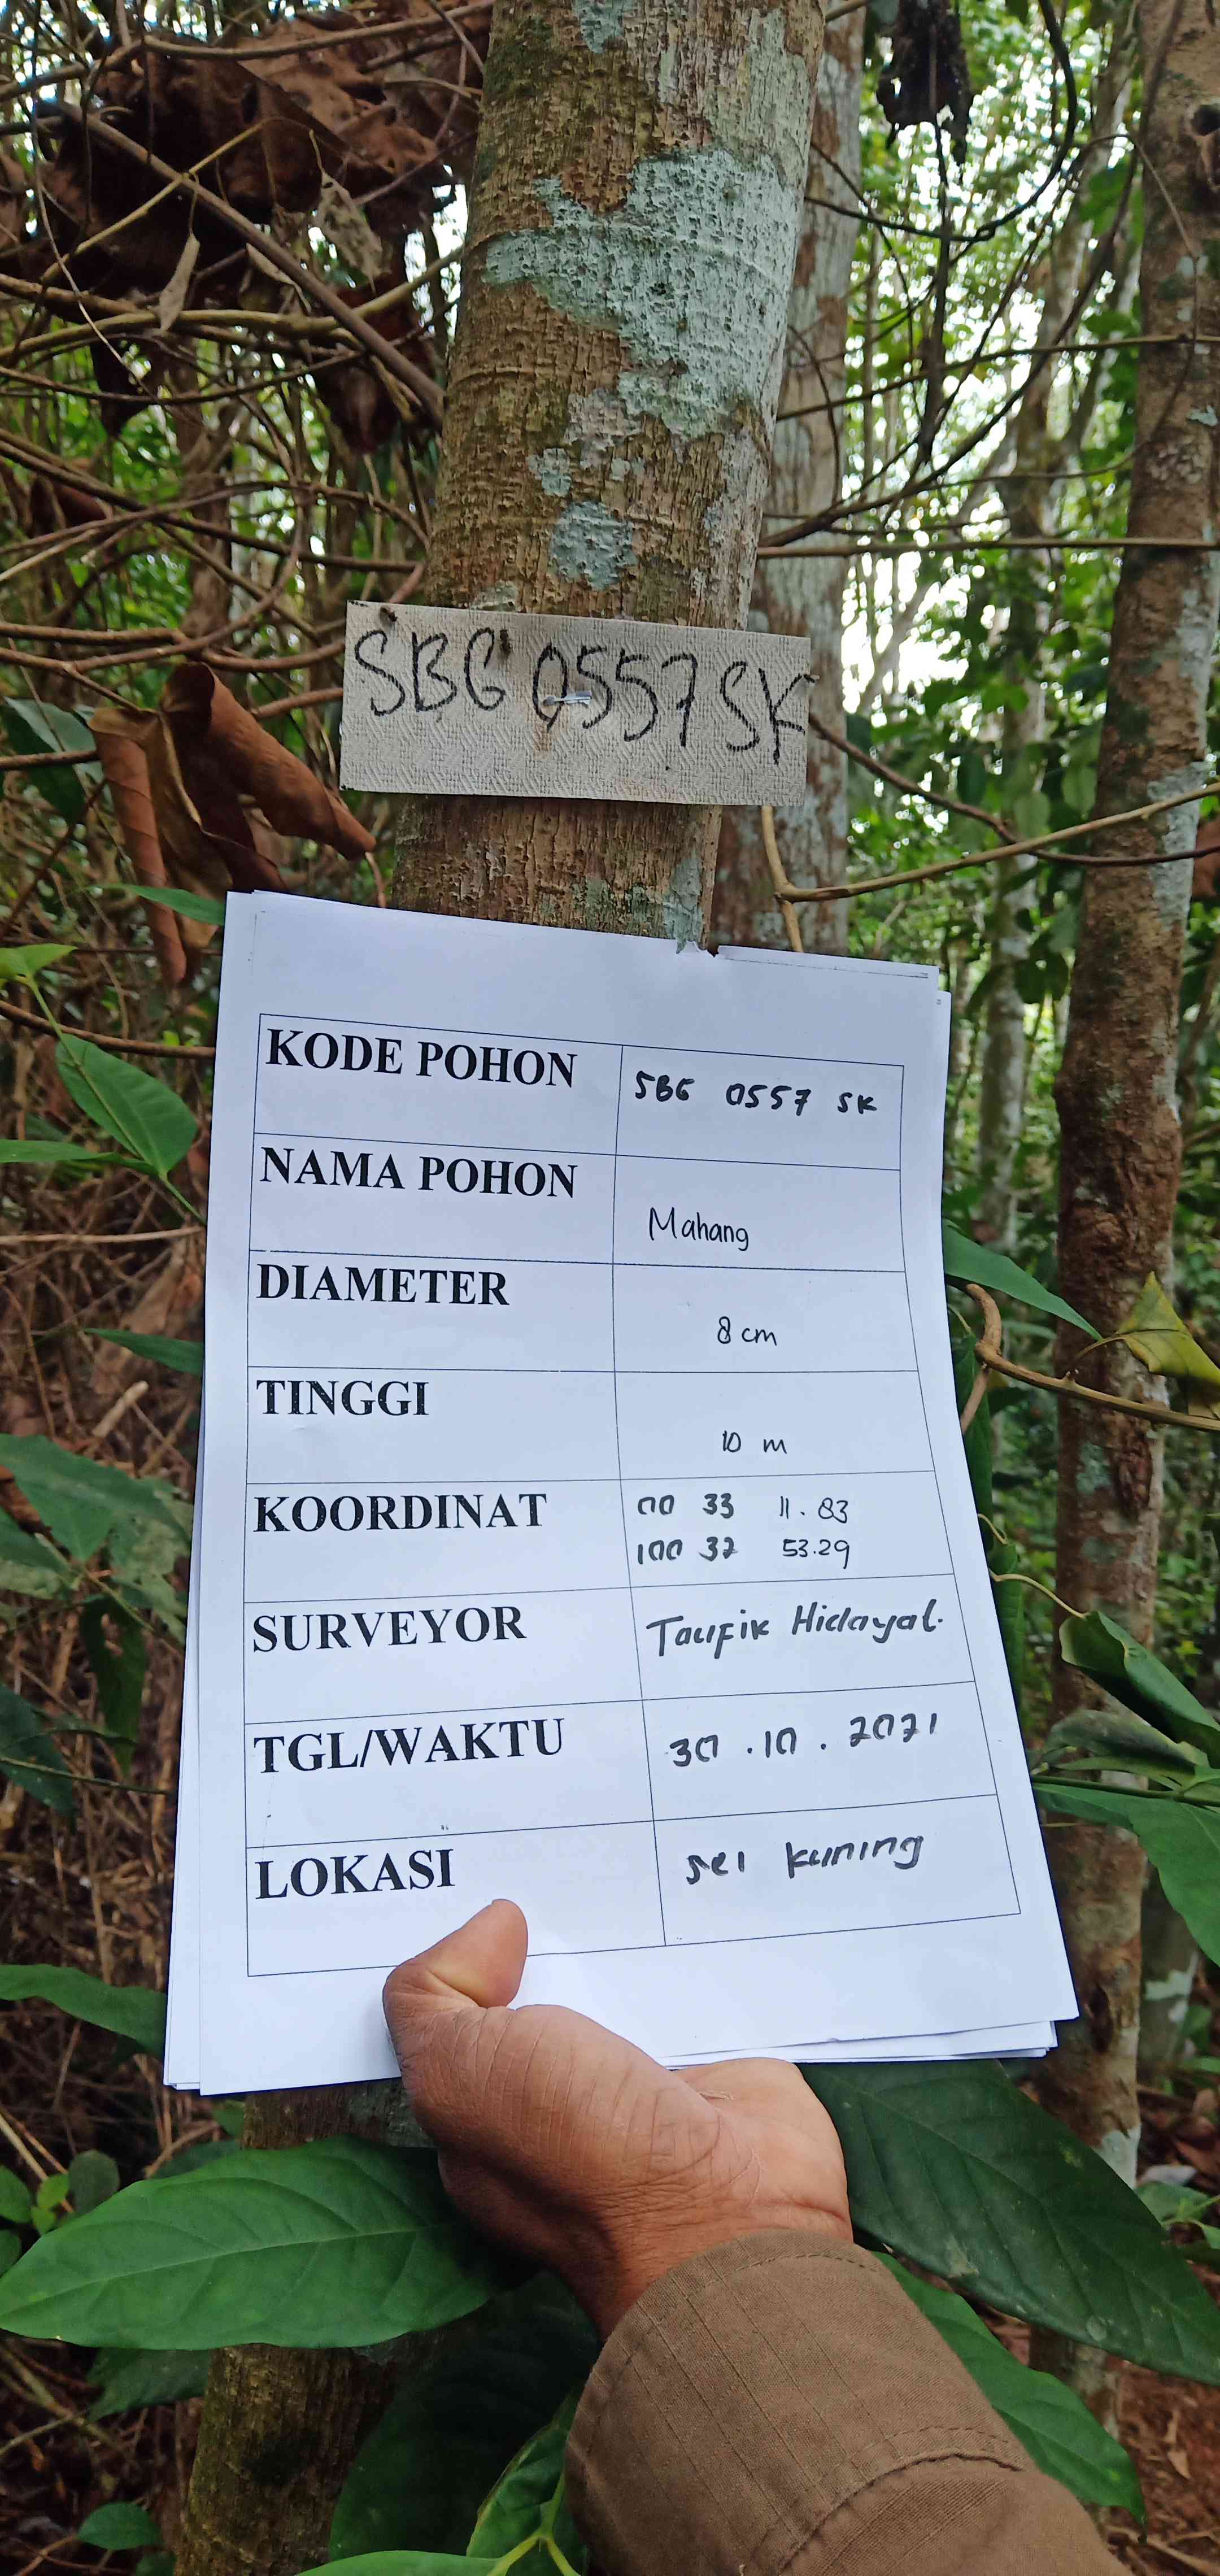 SBG 0557 SK
KODE POHON SBG 0557 SK
NAMA POHON Mahang
DIAMETER 8 cm
TINGGI 10 m
KOORDINAT 00 33 11.83
100 32 53.29
SURVEYOR Taufik Hidayat.
TGL/WAKTU 30.10.2021
LOKASI sei kuning